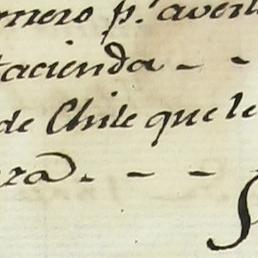 mero p.r aver
hacienda - -
de Chile que le
za. - - - -